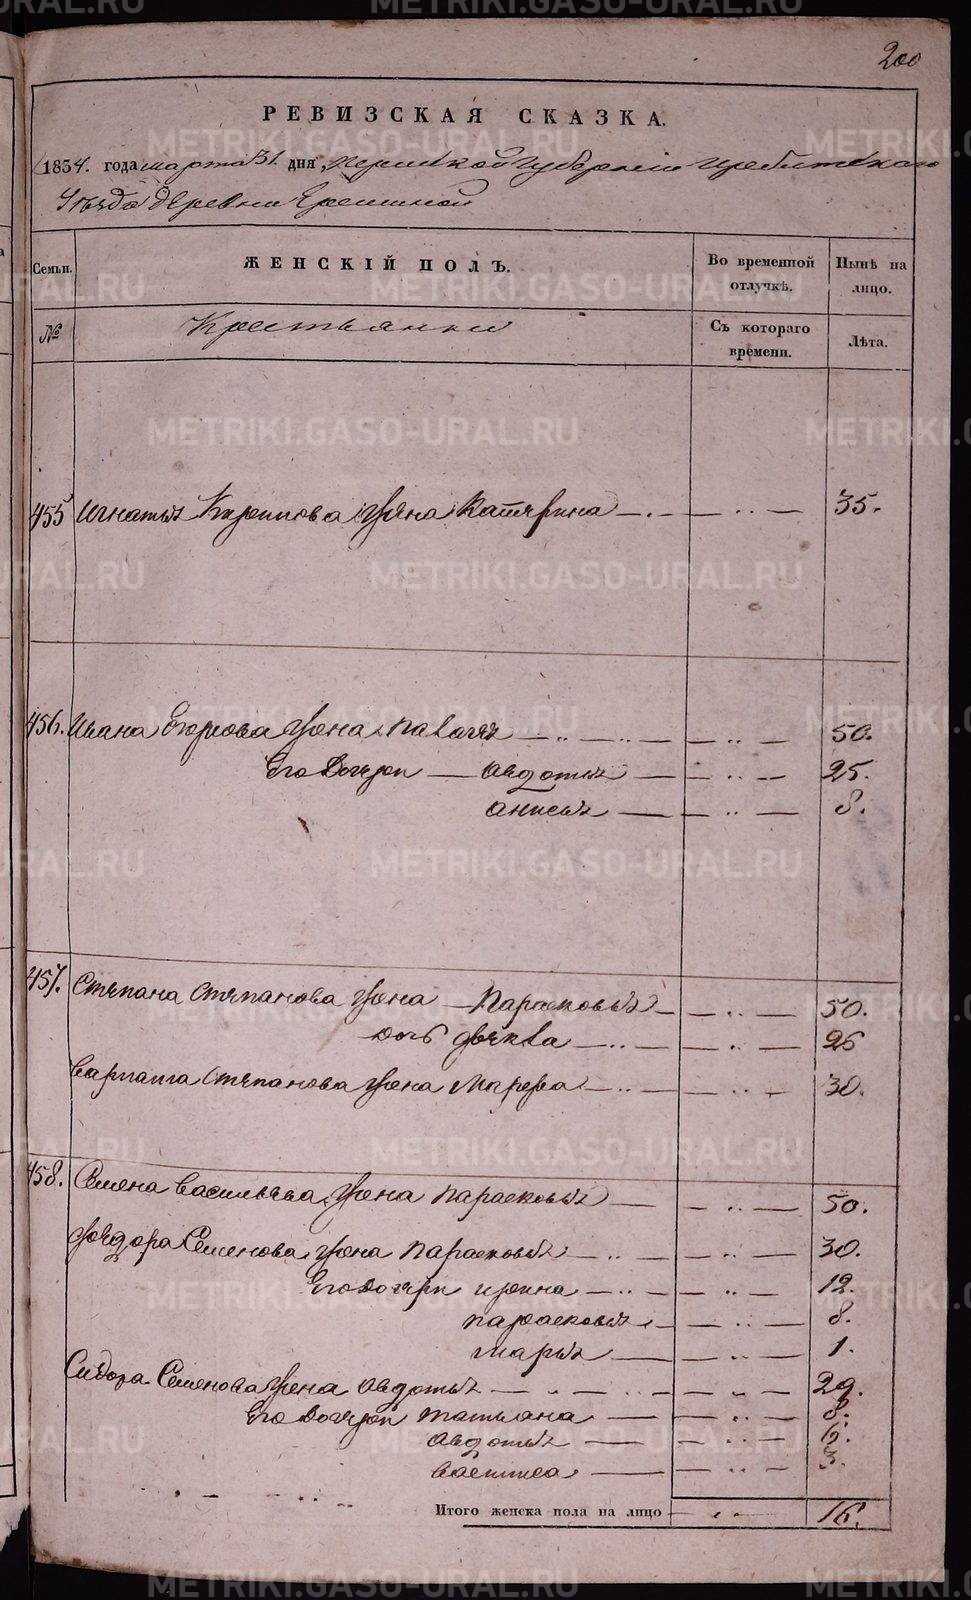 200
РЕВИЗСКАЯ СКАЗКА.
1834. года марта 31. дня, Пермской Губернии Ирбитскаго
Уезда деревни Ерешиной
Семьи. ЖЕНСКІЙ ПОЛЪ. Во временной отлучкѣ. Нынѣ на лицо.
№ Крестьянки Съ котораго времени. Лѣта.
455 Игнатья жена Катерина — . — — .. — 35.
456. Ивана Егорова жена Палагея — .. — .. — — .. — 50.
Его дочери — Авдотья — — .. — 25.
Анисья — — .. — 8.
457. Степана Степанова жена — Парасковья — — .. — 50.
дочь Фекла — .. — — .. — 26
Варлама Степанова жена Марфа — .. — — .. — 30.
458. Семена Васильева жена Парасковья — — .. — 50.
Федора Семенова жена Парасковья — .. — .. — 30.
Его дочери Ирина — .. — — .. — 12.
Парасковья . — — .. — 8.
Марья — — .. — 1.
Сидора Семенова жена Авдотья — .. — .. — — .. — 29.
Его дочери Татьяна — — .. — 8.
Авдотья — — .. — 6.
Васписа — — .. — 3.
Итого женска пола на лицо .. — 16.
METRIKI.GASO-URAL.RU